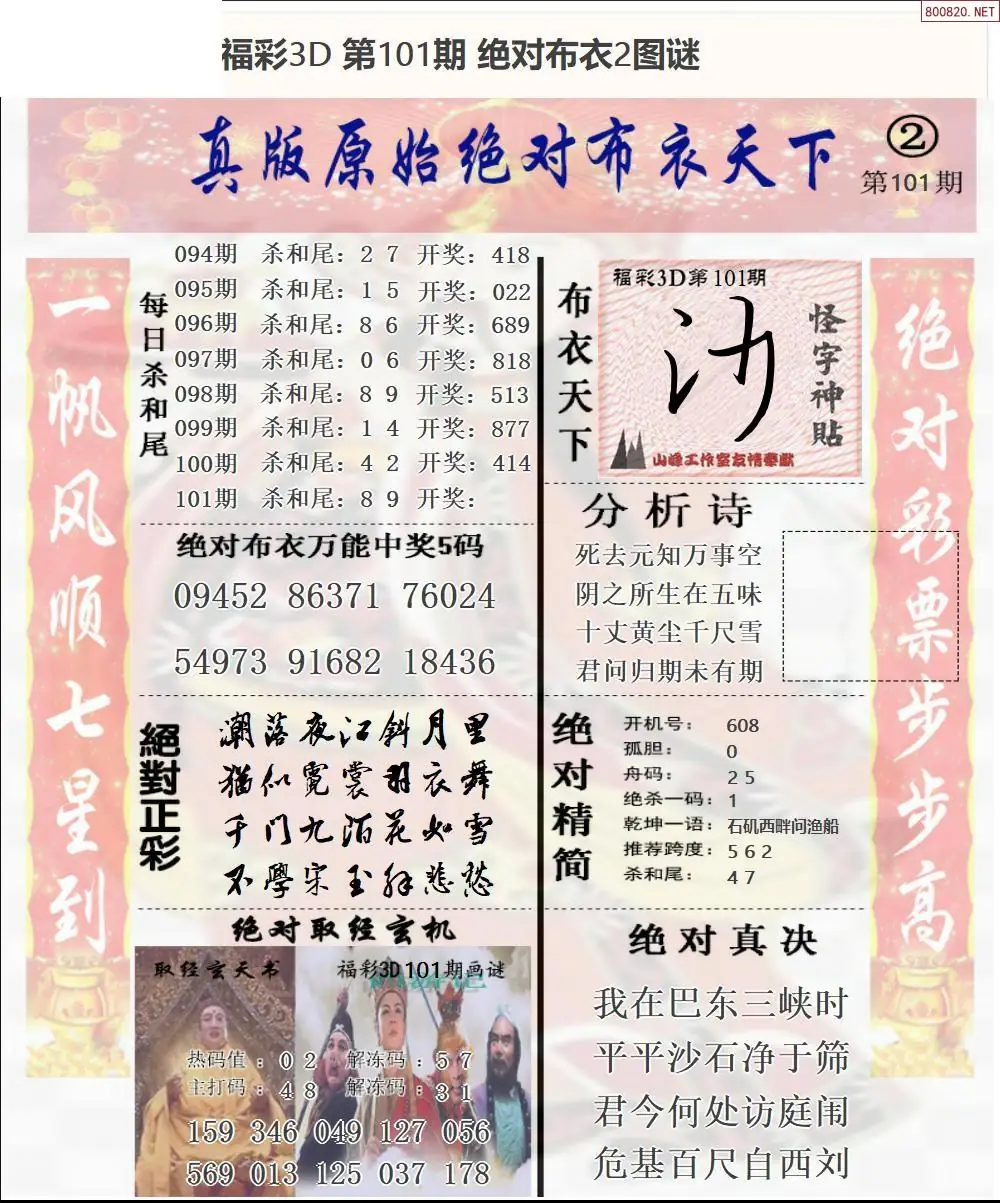 800820.NET
福彩3D 第101期 绝对布衣2图谜
真版原始绝对布衣天下
②
第101期
一帆风顺七星到
每日杀和尾
094期 杀和尾：2 7 开奖：418
095期 杀和尾：1 5 开奖：022
096期 杀和尾：8 6 开奖：689
097期 杀和尾：0 6 开奖：818
098期 杀和尾：8 9 开奖：513
099期 杀和尾：1 4 开奖：877
100期 杀和尾：4 2 开奖：414
101期 杀和尾：8 9 开奖：
绝对布衣万能中奖5码
09452 86371 76024
54973 91682 18436
絕對正彩
潮落夜江斜月里
犹似霓裳羽衣舞
千门九陌花如雪
不學宋玉解悲愁
绝对取经玄机
取经玄天书
福彩3D101期画谜
热码值：0 2 解冻码：5 7
主打码：4 8 解冻码：3 1
159 346 049 127 056
569 013 125 037 178
布衣天下
福彩3D第101期
怪字神贴
山峰工作室友情奉献
分析诗
死去元知万事空
阴之所生在五味
十丈黄尘千尺雪
君问归期未有期
绝对精简
开机号：608
孤胆：0
舟码：2 5
绝杀一码：1
乾坤一语：石矶西畔问渔船
推荐跨度：5 6 2
杀和尾：4 7
绝对真决
我在巴东三峡时
平平沙石净于筛
君今何处访庭闱
危基百尺自西刘
绝对彩票步步高